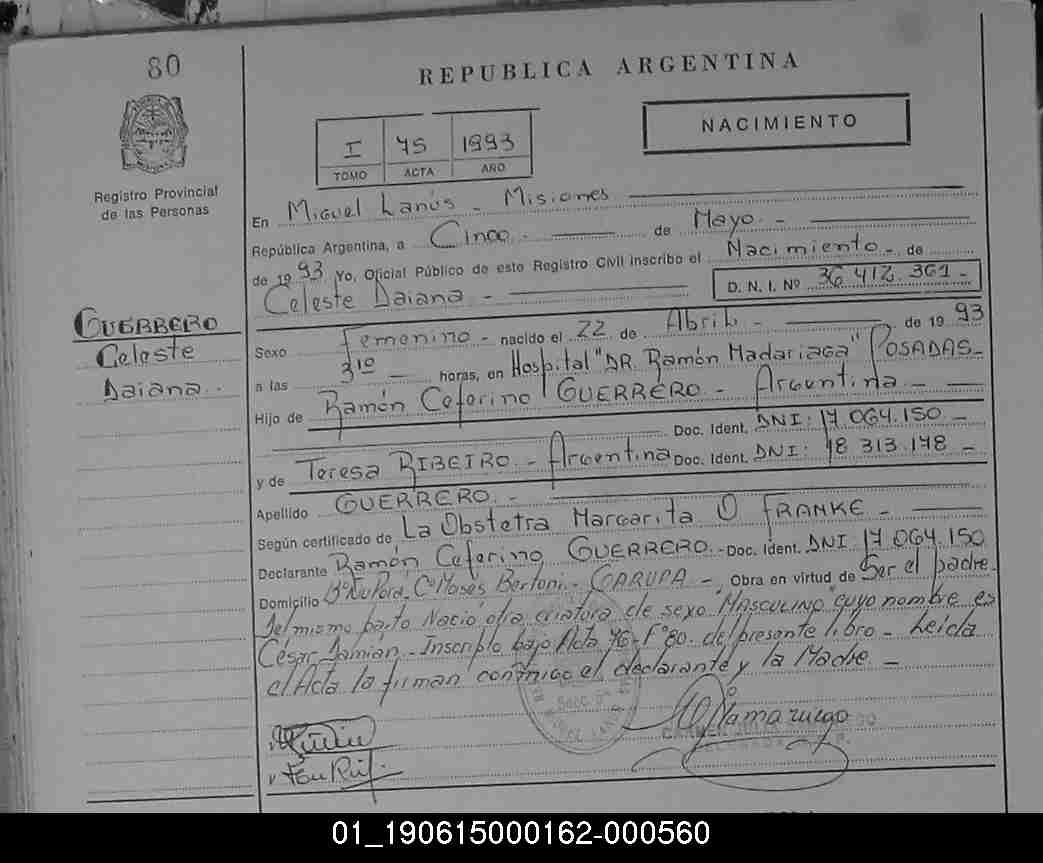 80
REPUBLICA ARGENTINA
NACIMIENTO
I 45 1993
TOMO ACTA AÑO
Registro Provincial
de las Personas
En Miguel Lanús - Misiones
República Argentina, a Cinco - de Mayo -
de 1993 Yo, Oficial Público de este Registro Civil inscribo el Nacimiento - de
Celeste Daiana - D. N. I. Nº 36 412.361 -
GUERRERO
Celeste
Daiana -
Sexo Femenino - nacido el 22 de Abril - de 1993
a las 3 10 horas, en Hospital "DR. Ramón Madariaga" POSADAS -
Hijo de Ramón Ceferino GUERRERO - Argentina -
Doc. Ident. DNI: 17.064.150 -
y de Teresa RIBEIRO - Argentina Doc. Ident. DNI: 18 313.178 -
Apellido GUERRERO -
Según certificado de La Obstetra Margarita O FRANKE -
Declarante Ramón Ceferino GUERRERO - Doc. Ident. DNI 17.064.150
Domicilio Bº Ñu Porá, Cº Moisés Bertoni - GARUPA - Obra en virtud de Ser el padre.
Del mismo parto Nació otra criatura de sexo "MASCULINO" cuyo nombre es
César Damián - Inscripto bajo Acta 46 - Fº 80. del presente libro - Leida
el Acta la firman conmigo el declarante y la Madre -
01_190615000162-000560